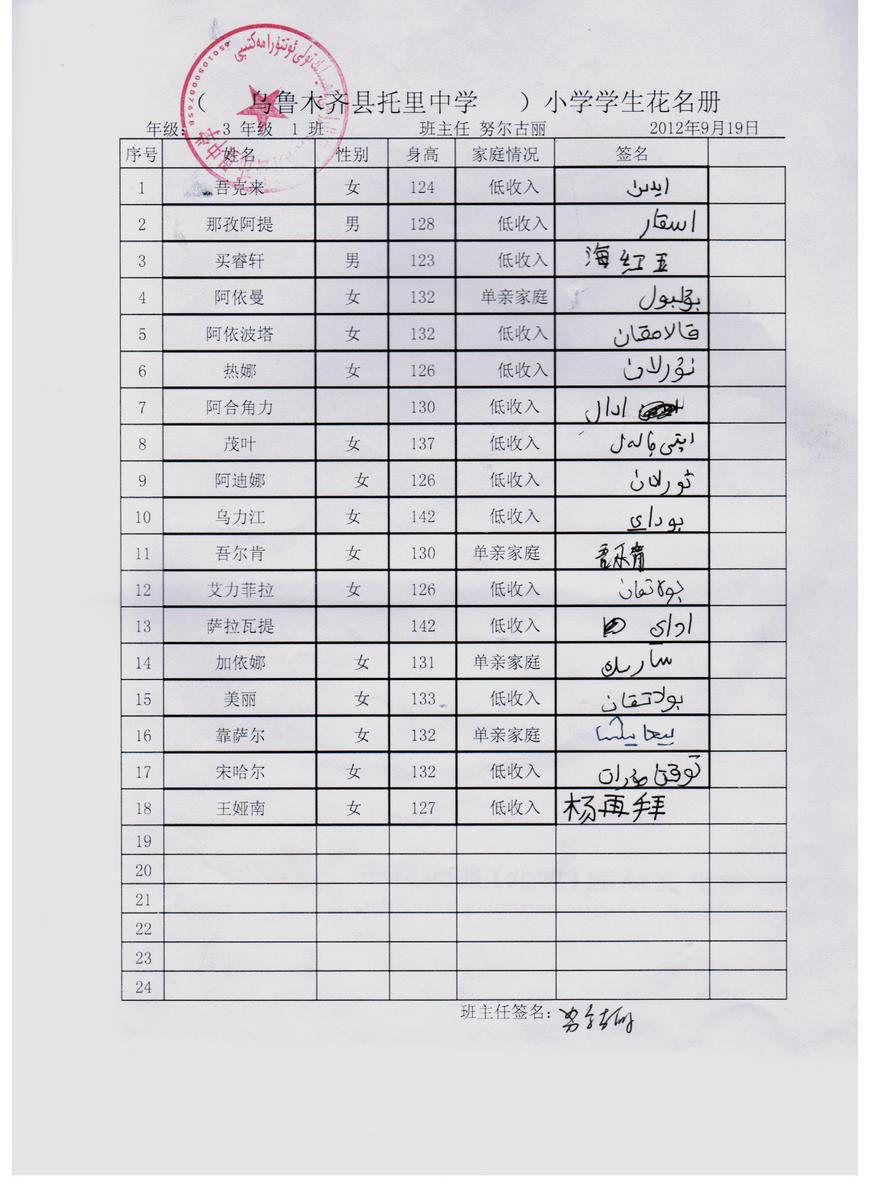 （ 乌鲁木齐县托里中学 ）小学学生花名册
年级： 3 年级 1 班 班主任 努尔古丽 2012年9月19日
序号 姓名 性别 身高 家庭情况 签名
1 吾克来 女 124 低收入
2 那孜阿提 男 128 低收入 اسقار
3 买睿轩 男 123 低收入 海红玉
4 阿依曼 女 132 单亲家庭
5 阿依波塔 女 132 低收入 قالامقان
6 热娜 女 126 低收入 نۇرلان
7 阿合角力 130 低收入 ادال
8 茂叶 女 137 低收入
9 阿迪娜 女 126 低收入
10 乌力江 女 142 低收入 بوداي
11 吾尔肯 女 130 单亲家庭 吾尔肯
12 艾力菲拉 女 126 低收入 بولاتقان
13 萨拉瓦提 142 低收入 اداي
14 加依娜 女 131 单亲家庭
15 美丽 女 133 低收入 بولاتقان
16 靠萨尔 女 132 单亲家庭
17 宋哈尔 女 132 低收入
18 王娅南 女 127 低收入 杨再拜
19
20
21
22
23
24
班主任签名： 努尔古丽